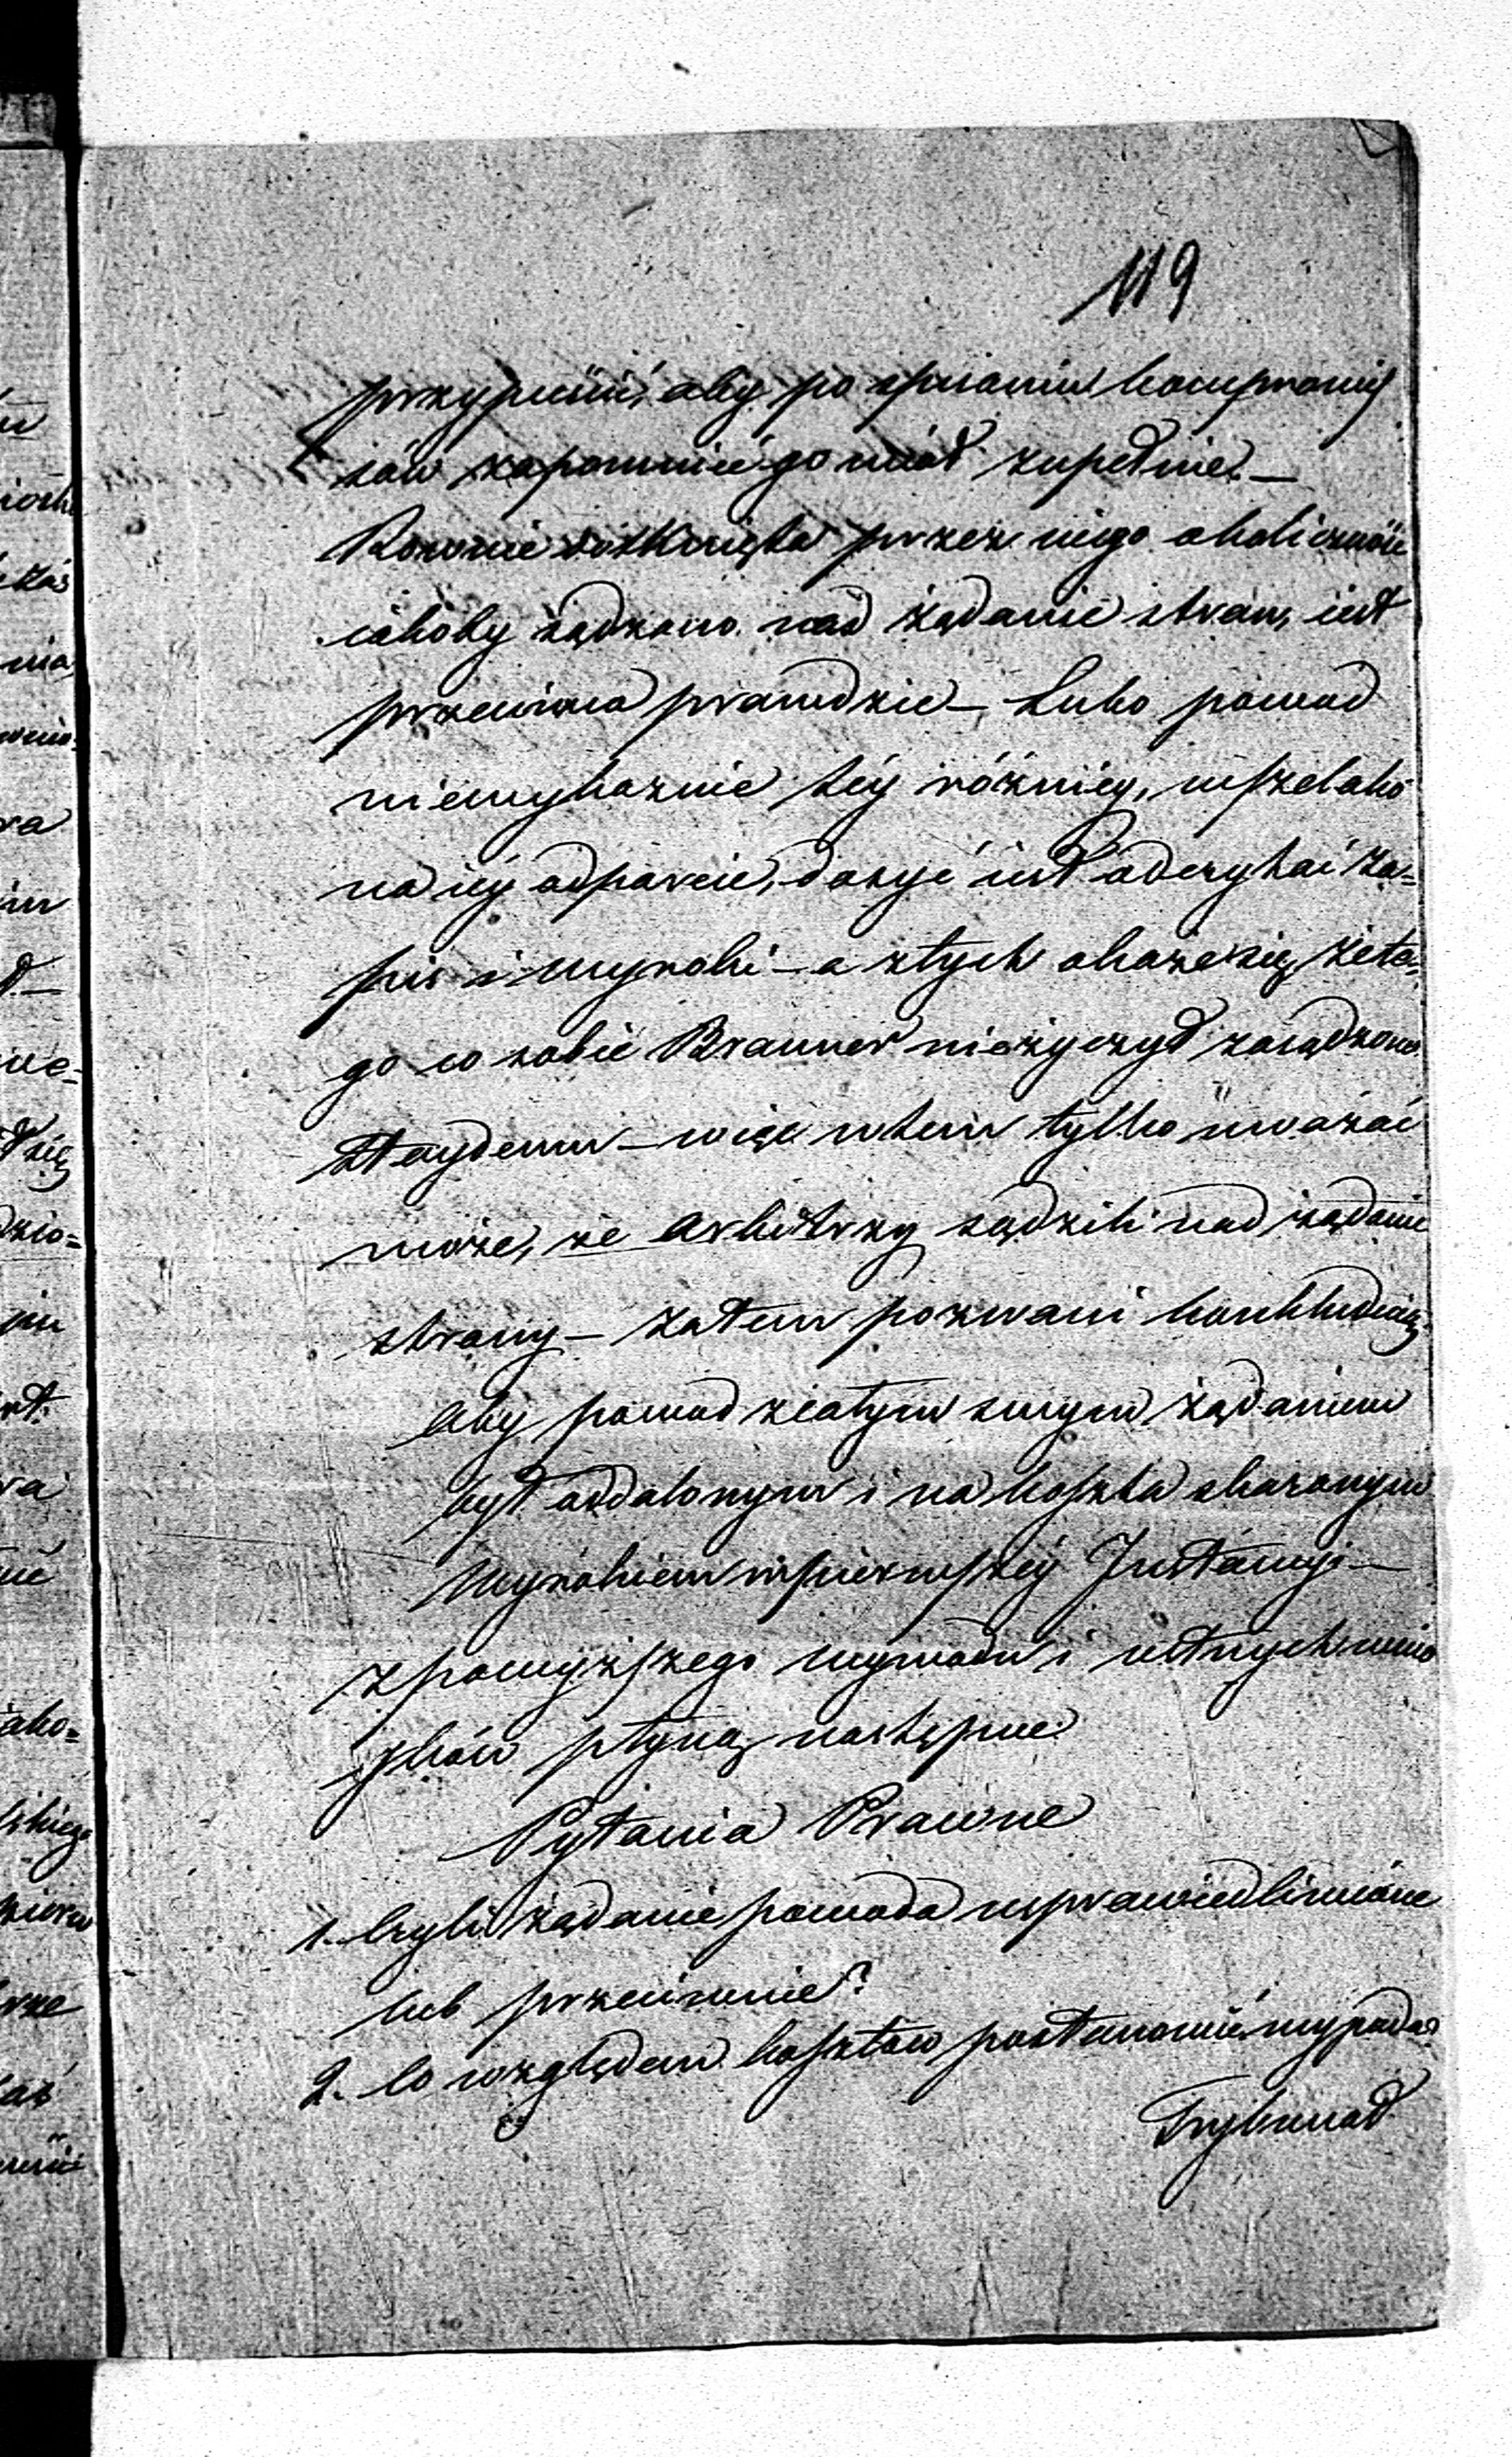 119
przypuścić, aby po spisaniu kompromis
sów zapomnieć go miał zupełnie. —
Równie dotknięta przez niego okoliczność
jakoby sądzono nad żądanie stron, jest
przeciwna prawdzie — Lubo powod
niewykaznie téy różnicy, wszelako
na iéy odparcie, dosyć iest odczytać za=
pis i wyroki — a z tych okaże się, że te=
go co sobie Brauner nieżyczył zasądzono
Staydemu — więc w tem tylko uważać
może, że Arbitrzy sądzili nad żądanie
strony — zatem pozwani konkludują
aby powod z całym swym żądaniem
był oddalonym i na koszta skazanym
Wyrokiem w pierwszéy Instancyi —
z powyższego wywodu i ustnych wnio
sków płyną następne
Pytania Prawne
1. Czyli żądanie powoda usprawiedliwione
lub przeciwnie?
2. Co względem kosztów postanowić wypada
Trybunał